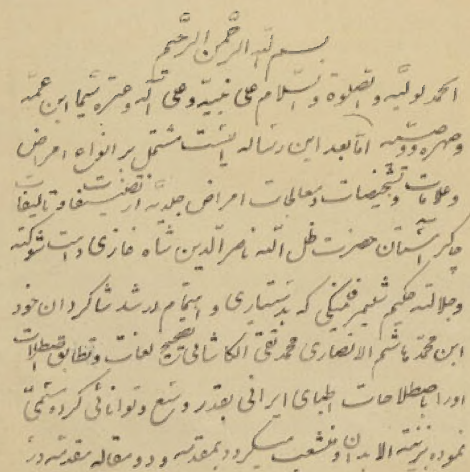 بسم الله الرحمن الرحیم
الحمد لولیه و الصلوة و السلام علی نبیه و علی آله و عترته سیما ابن عمه
و صهره و وصیه اما بعد این رساله ایست مشتمل بر انواع امراض
و علامات و تشخیصات و معالجات امراض جلدیه از تصنیفات و تالیفات
چاکر آستان حضرت ظل الله ناصرالدین شاه غازی دامت شوکته
و جلالته حکیم شلیمر فلمنکی که بدستیاری و اهتمام ارشد شاکردان خود
ابن محمد هاشم الانصاری محمد تقی الکاشانی تصحیح لغات و تطابق اصطلاحات
او را با صطلاحات اطبای ایرانی بقدر وسع و توانائی کرده مسمی
نموده بزینة الابدان و منشعب میکردد بمقدمه و دو مقاله مقدمه در